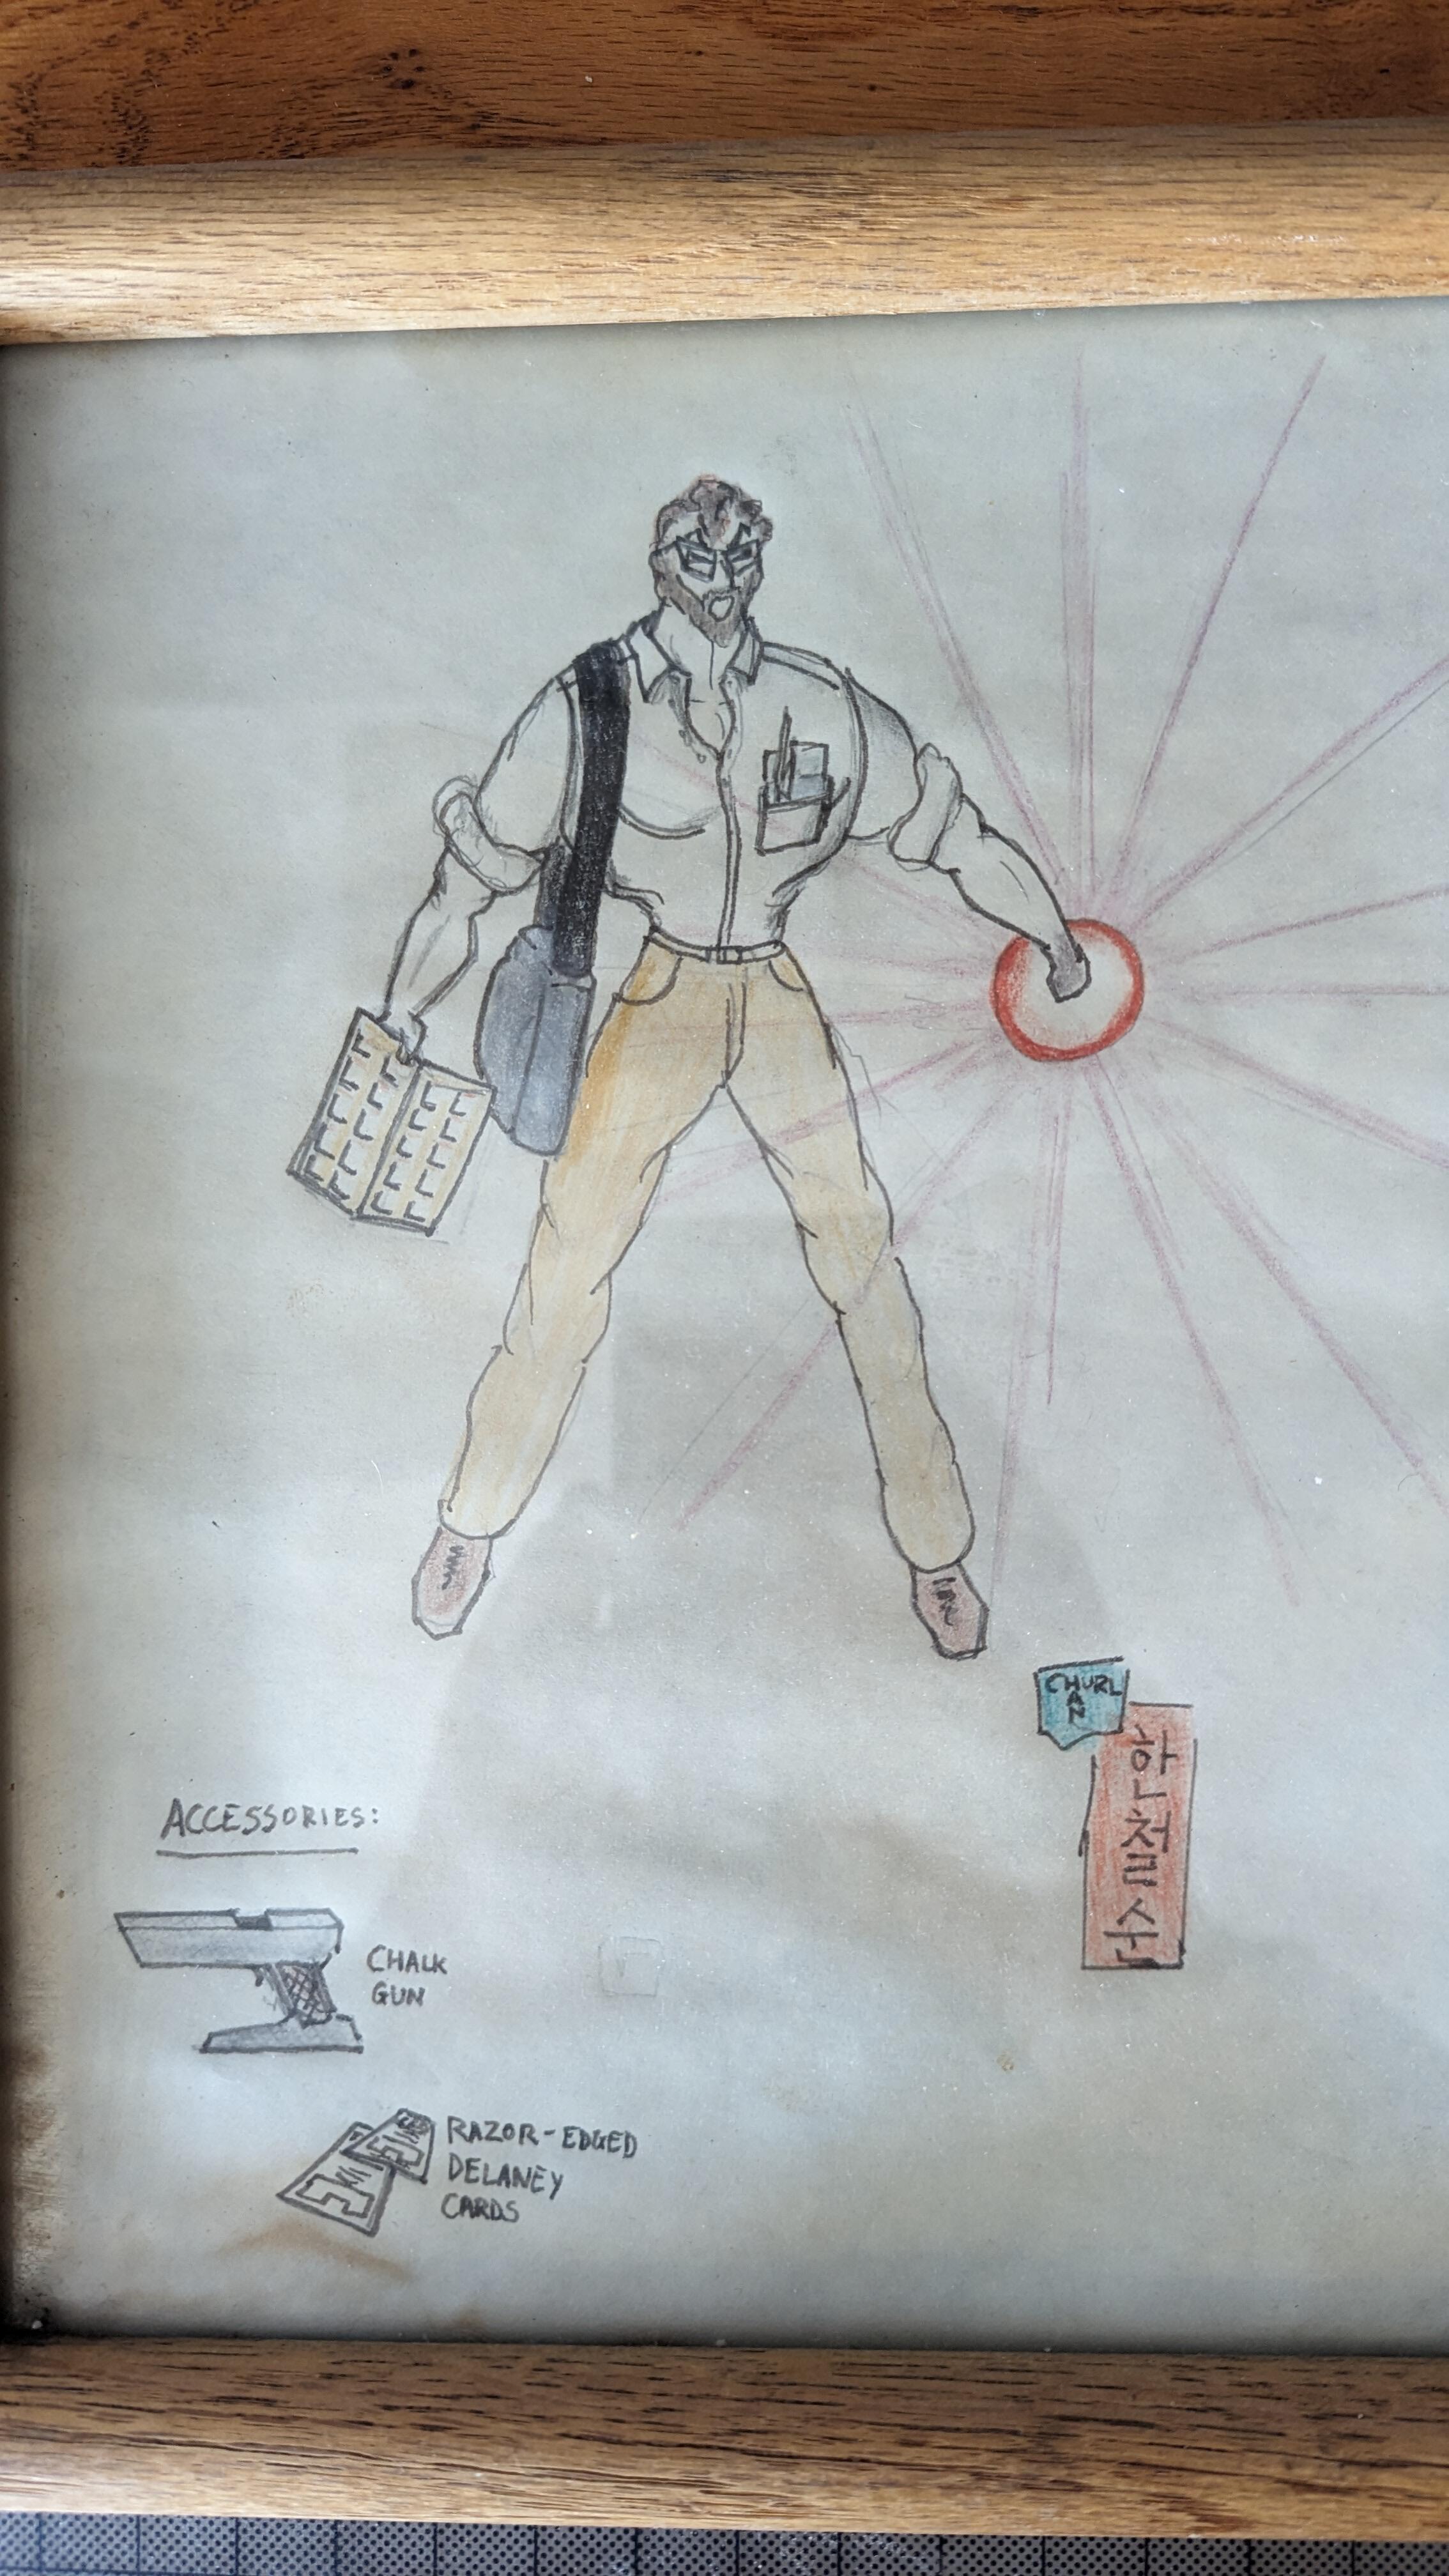 CHURL
A
N
한철순
ACCESSORIES:
CHALK
GUN
RAZOR-EDGED
DELANEY
CARDS